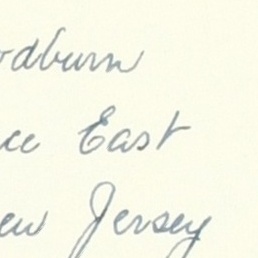 odburn
ce East
ew Jersey